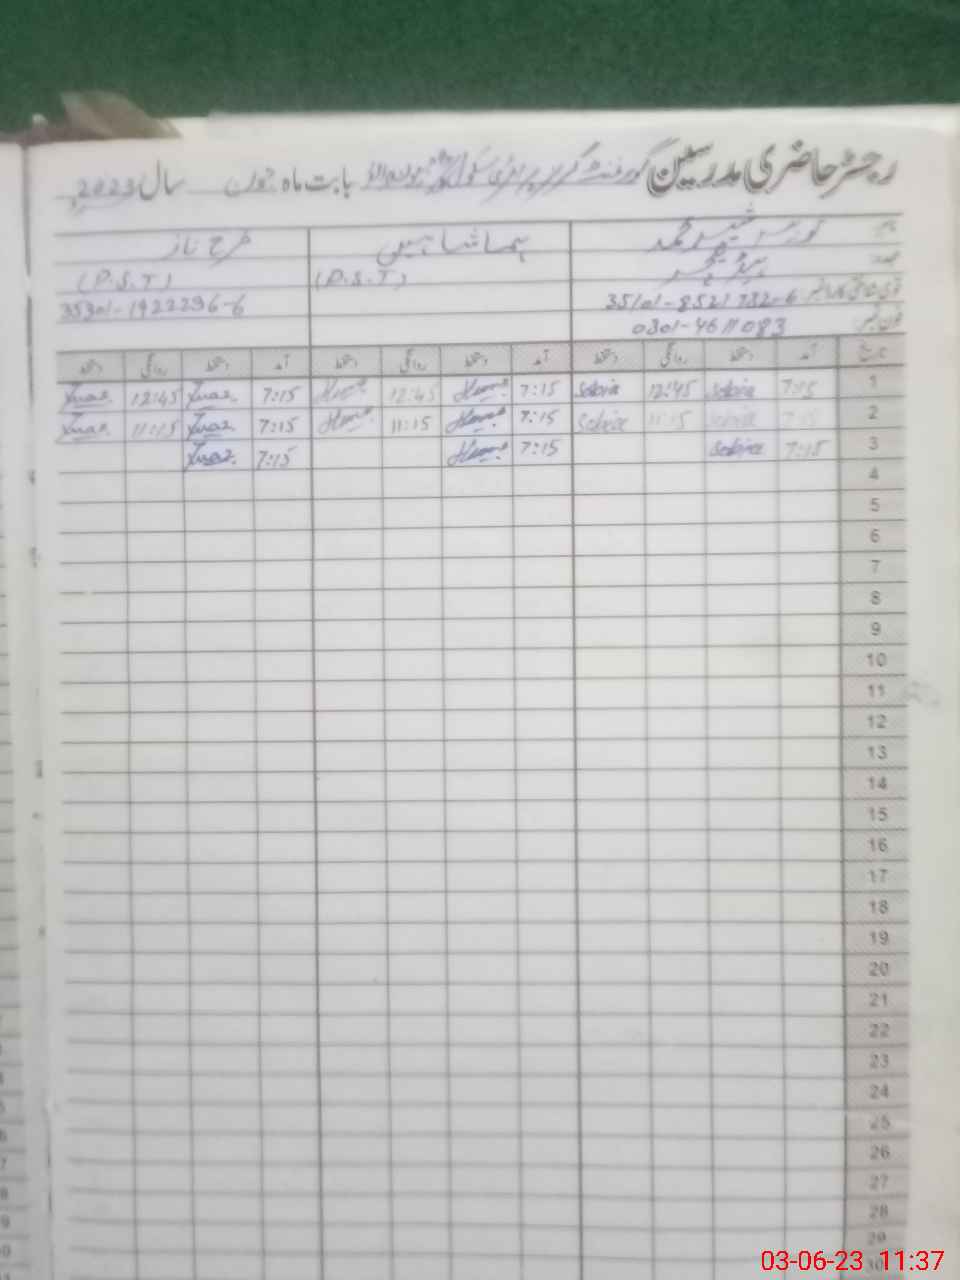 رجسٹر حاضری مدرسین گورنمنٹ گرلز پرائمری سکول بابت ماہ جون سال 2023ء
نام
عہدہ ہیڈ ٹیچر
قومی شناختی کارڈ نمبر 35101-8521732-6
فون نمبر 0301-4611083
ہما شاہین
(P.S.T)
فرح ناز
(P.S.T)
35301-1922296-6
تاریخ آمد دستخط روانگی دستخط آمد دستخط روانگی دستخط آمد دستخط روانگی دستخط
1 7:15 Sobia 12:45 Sobia 7:15 Huma 12:45 Huma 7:15 12:45
2 7:15 Sobia 11:15 Sobia 7:15 Huma 11:15 Huma 7:15 11:15
3 7:15 Sobia 7:15 Huma 7:15
4
5
6
7
8
9
10
11
12
13
14
15
16
17
18
19
20
21
22
23
24
25
26
27
28
29
30
03-06-23 11:37